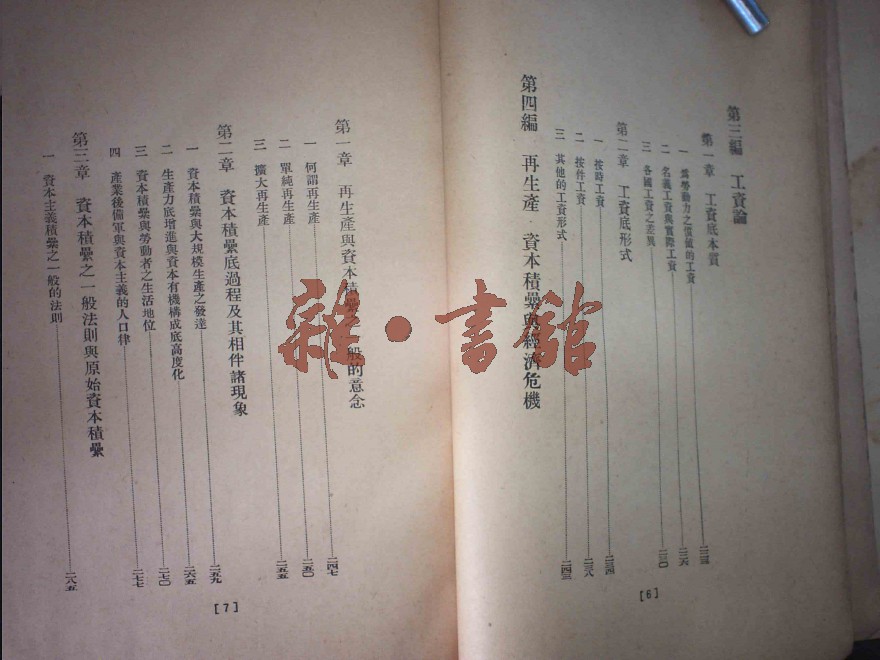 第三編 工資論
第一章 工資底本質
一 爲勞動力之價値的工資
二 名義工資與實際工資 二二六
三 各國工資之差異 二三〇
第二章 工資底形式
一 按時工資 二三四
二 按件工資 二三八
三 其他的工資形式 二四三
第四編 再生產·資本積纍與經濟危機
[6]
第一章 再生產與資本積纍 般的意念
一 何謂再生產 二四七
二 單純再生產 二五〇
三 擴大再生產 二五五
第二章 資本積纍底過程及其相伴諸現象
一 資本積纍與大規模生產之發達 二五九
二 生產力底增進與資本有機構成底高度化 二六五
三 資本積纍與勞動者之生活地位 二七〇
四 產業後備軍與資本主義的人口律 二七七
第三章 資本積纍之一般法則與原始資本積纍
一 資本主義積纍之一般的法則 二八五
[7]
雜·書館